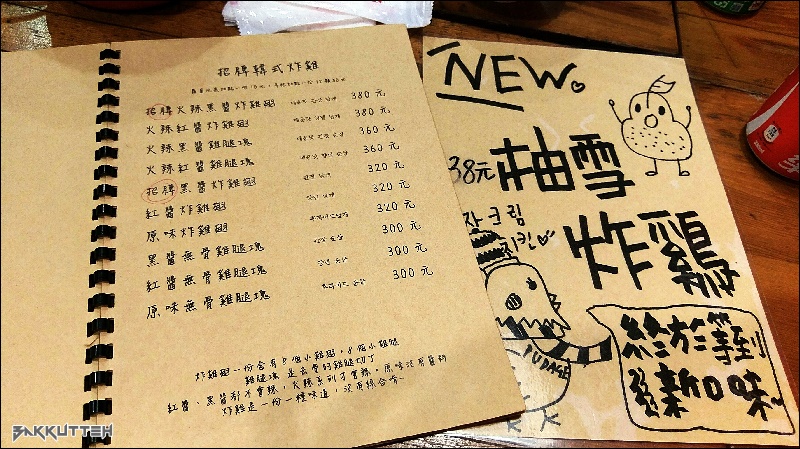 招牌韓式炸雞
招牌火辣黑醬炸雞翅 380 元
火辣紅醬炸雞翅 380 元
火辣黑醬雞腿塊 360 元
火辣紅醬雞腿塊 360 元
招牌黑醬炸雞翅 320 元
紅醬炸雞翅 320 元
原味炸雞翅 320 元
黑醬無骨雞腿塊 300 元
紅醬無骨雞腿塊 300 元
原味無骨雞腿塊 300 元
炸雞翅一份含有8個小雞翅, 8個小雞腿
雞腿塊 是去骨的雞腿切丁
紅醬、黑醬都不會辣, 火辣系列才會辣, 原味沒有醬料
炸雞是一份一種味道, 沒有綜合唷~
NEW
38元 柚雪
炸鷄
치킨
PUDAGE
終於等到
新口味~
BAKKUTTEH